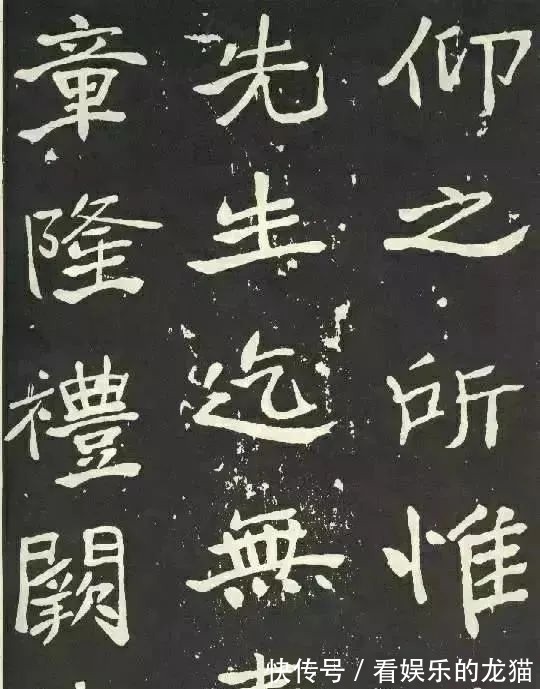 仰之所惟
先生迄無
章隆禮闕
快传号 / 看娱乐的龙猫